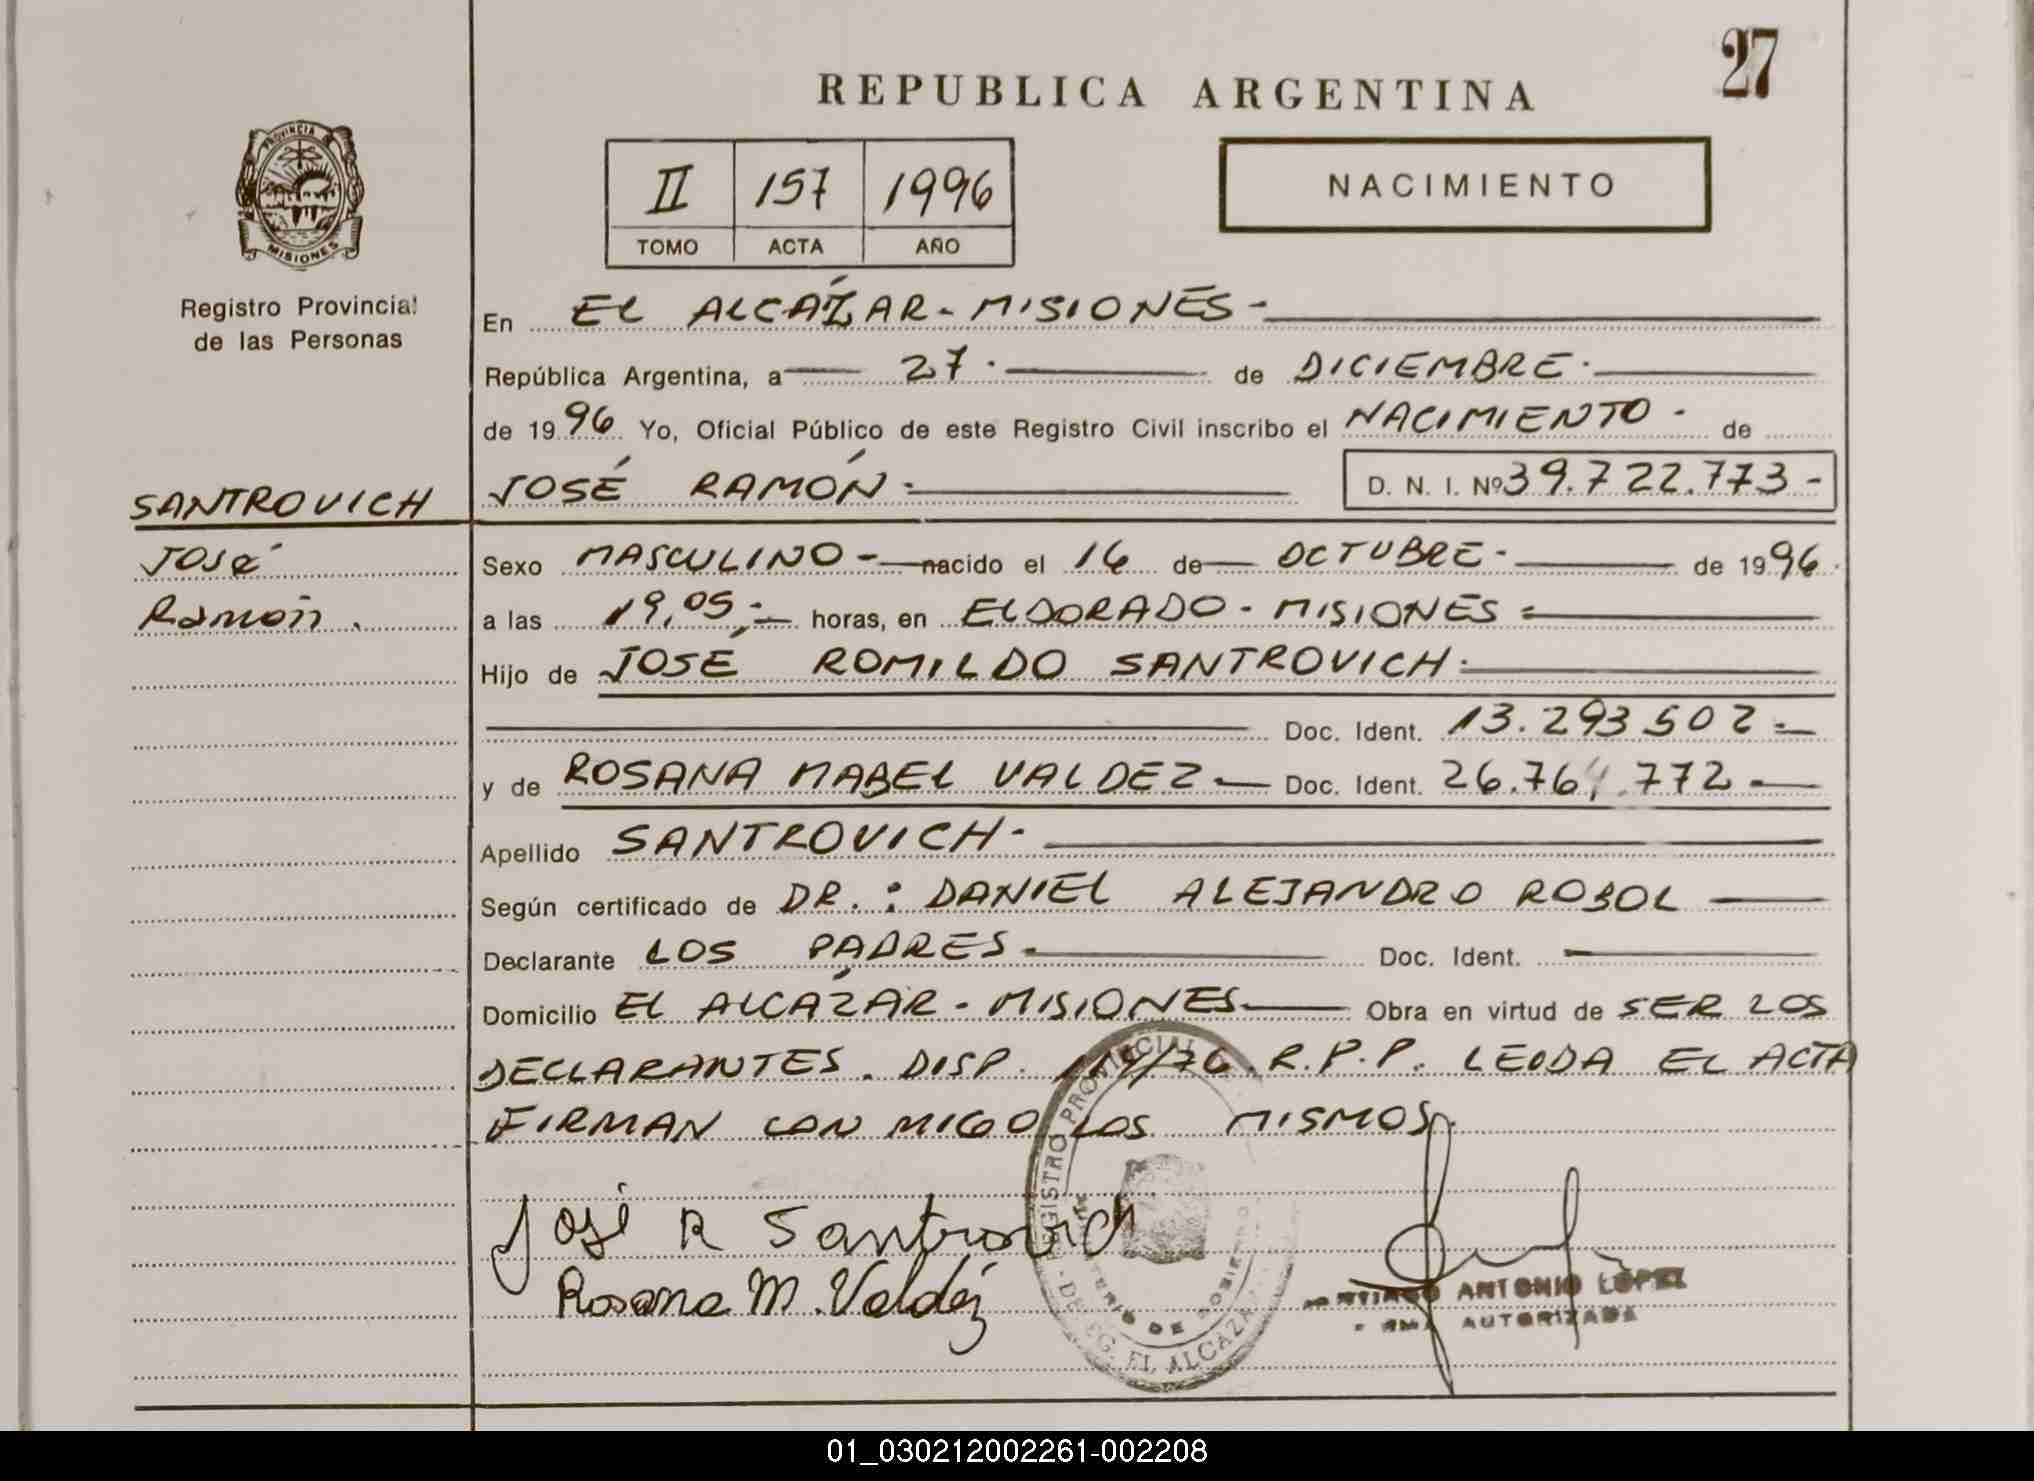 27
REPUBLICA ARGENTINA
PROVINCIA
MISIONES
Registro Provincial
de las Personas
II 157 1996
TOMO ACTA AÑO
NACIMIENTO
En EL ALCAZAR - MISIONES -
República Argentina, a 27 - de DICIEMBRE -
de 1996 Yo, Oficial Público de este Registro Civil inscribo el NACIMIENTO - de
JOSÉ RAMÓN - D. N. I. Nº 39.722.773 -
SANTROVICH
José
Ramón .
Sexo MASCULINO - nacido el 16 de OCTUBRE - de 1996
a las 19,05 horas, en ELDORADO - MISIONES =
Hijo de JOSÉ ROMILDO SANTROVICH
Doc. Ident. 13.293502 =
y de ROSANA MABEL VALDEZ - Doc. Ident. 26.764.772 -
Apellido SANTROVICH -
Según certificado de DR. : DANIEL ALEJANDRO ROBOL
Declarante LOS PADRES Doc. Ident.
Domicilio EL ALCÁZAR - MISIONES Obra en virtud de SER LOS
DECLARANTES . DISP. 114/76 R.P.P. LEIDA EL ACTA
FIRMAN CON MIGO LOS MISMOS.
José R Santrovich
Rosana M. Valdéz
REGISTRO PROVINCIAL
MINISTERIO DE GOBIERNO
DELEG. EL ALCAZAR
ANTONIO LOPEZ
AUTORIZADA
01_030212002261-002208